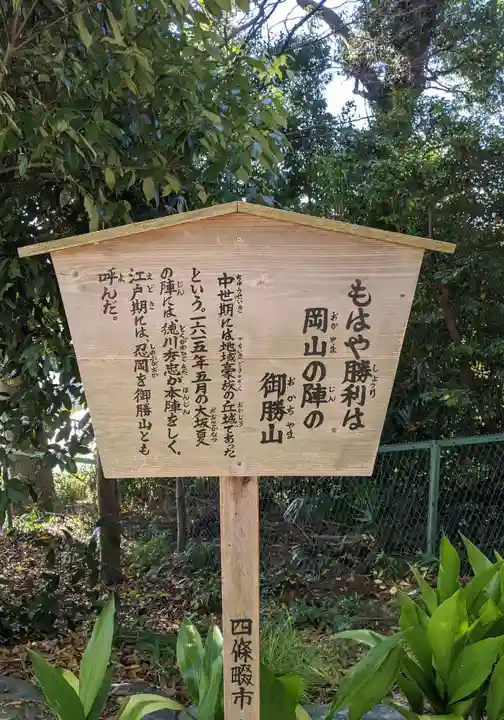 もはや勝利は
岡山の陣の
御勝山
中世期には地域豪族の丘城であった
という。一六一五年五月の大坂夏
の陣には、徳川秀忠が本陣をしく。
江戸期には、忍岡を御勝山とも
呼んだ。
四條畷市